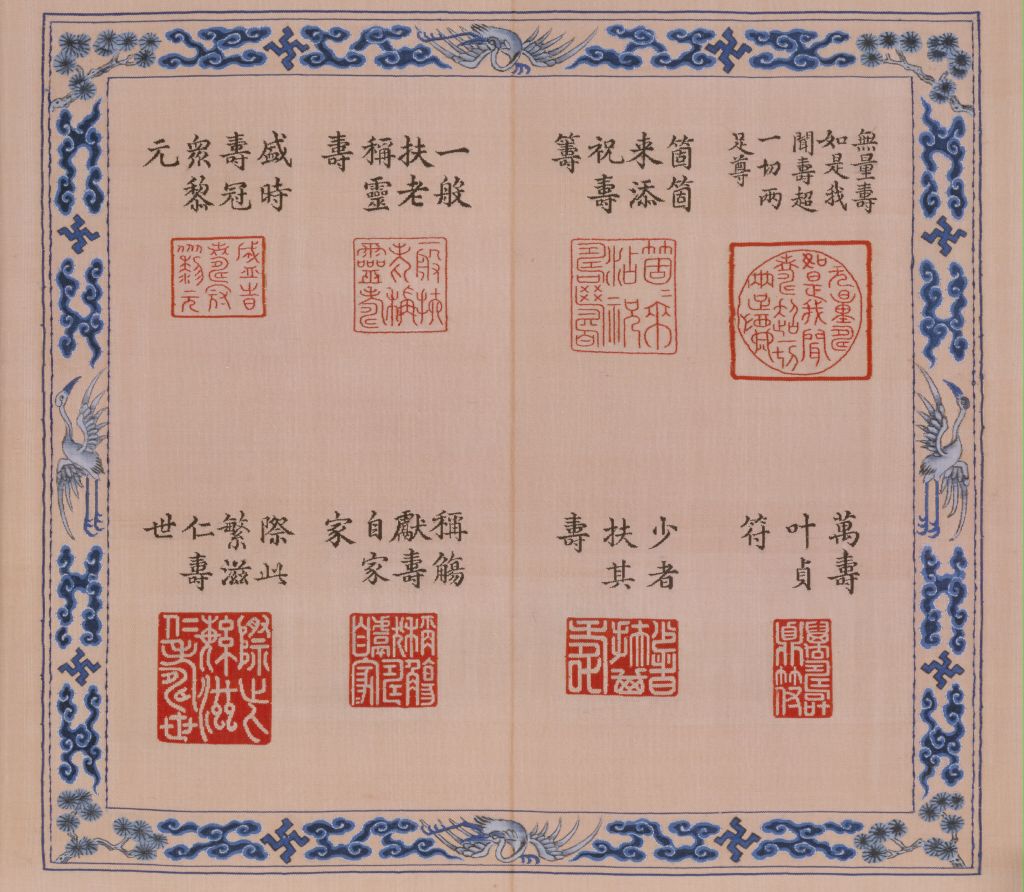 無量壽
如是我
聞壽超
一切兩
足尊
箇箇
来添
祝壽
籌
一般
扶老
稱靈
壽
盛時
壽冠
衆黎
元
萬壽
叶貞
符
少者
扶其
壽
稱觴
獻壽
自家
家
際此
繁滋
仁壽
世